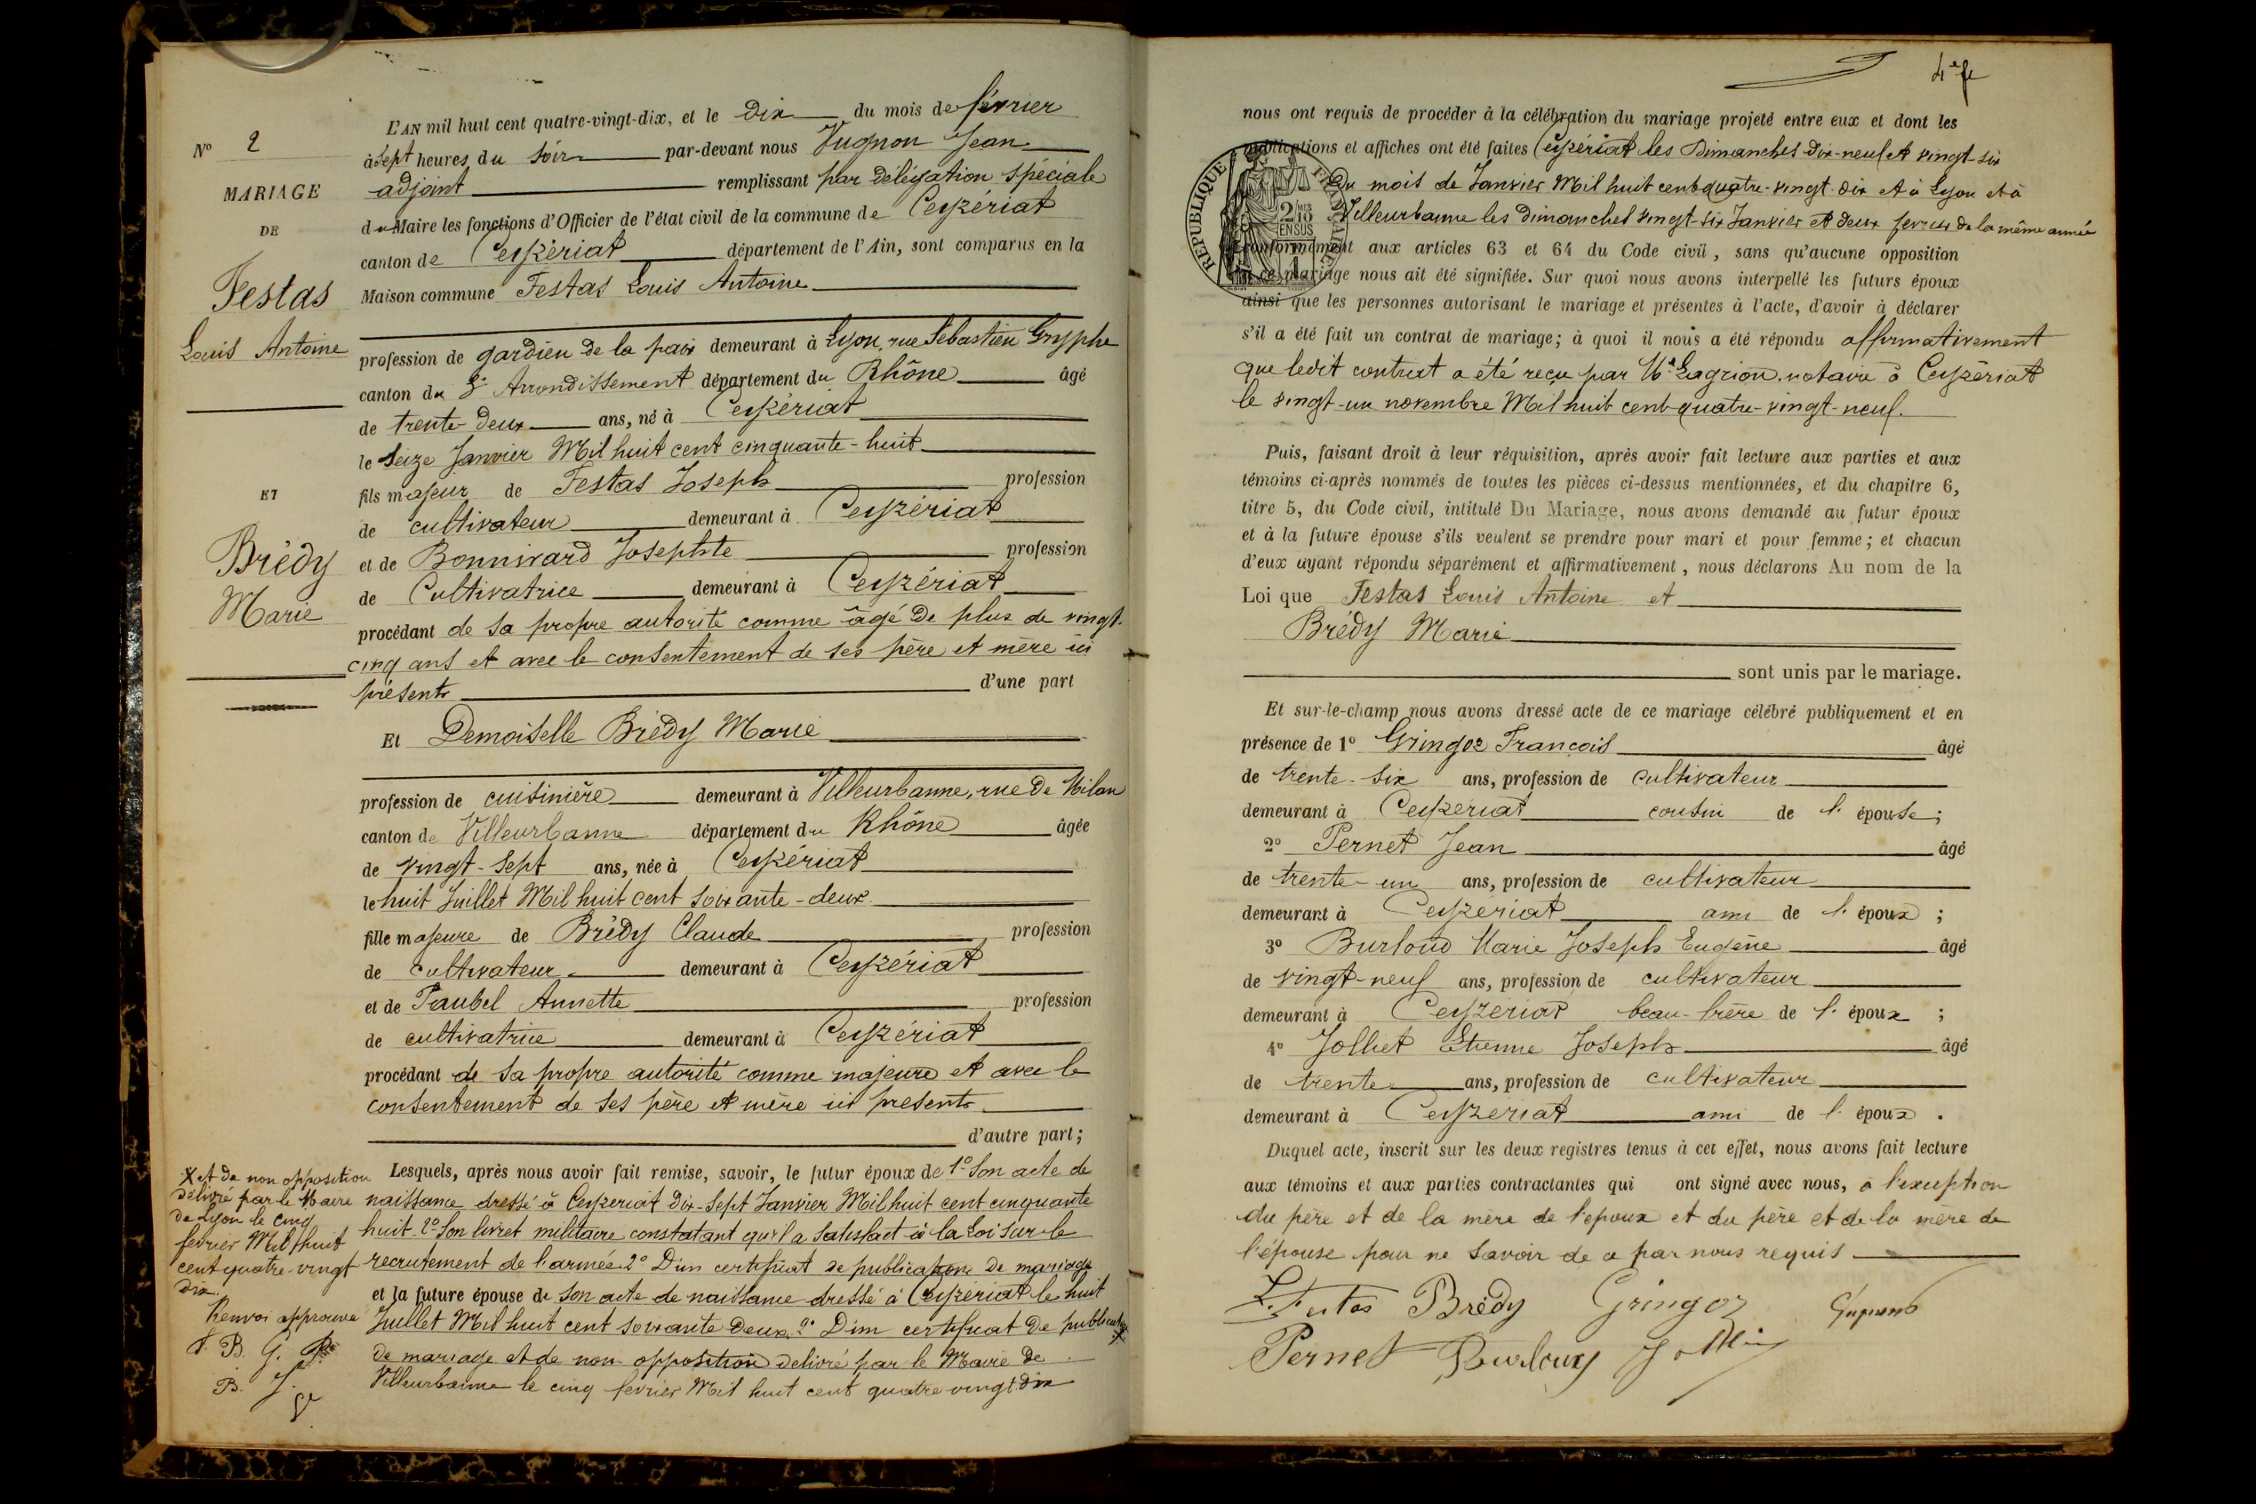 N° 2
MARIAGE
DE
Festas
Louis Antoine
ET
Brédy
Marie
L'AN mil huit cent quatre-vingt-dix, et le Dix du mois de février
à sept heures du soir par-devant nous Vugnon Jean
adjoint remplissant par délégation spéciale
du Maire les fonctions d'Officier de l'état civil de la commune de Ceyzériat
canton de Ceyzériat département de l'Ain, sont comparus en la
Maison commune Festas Louis Antoine
profession de gardien de la paix demeurant à Lyon, rue Sébastien Gryphe
canton du 3e Arrondissement département du Rhône âgé
de trente-deux ans, né à Ceyzériat
le seize Janvier Mil huit cent cinquante-huit
fils majeur de Festas Joseph profession
de cultivateur demeurant à Ceyzériat
et de Bonnivard Josephte profession
de Cultivatrice demeurant à Ceyzériat
procédant de sa propre autorité comme âgé de plus de vingt-
cinq ans et avec le consentement de ses père et mère ici
présents d'une part
Et Demoiselle Brédy Marie
profession de cuisinière demeurant à Villeurbanne, rue de Milan
canton de Villeurbanne département du Rhône âgée
de vingt-sept ans, née à Ceyzériat
le huit Juillet Mil huit cent soixante-deux
fille majeure de Brédy Claude profession
de cultivateur demeurant à Ceyzériat
et de Paubel Annette profession
de cultivatrice demeurant à Ceyzériat
procédant de sa propre autorité comme majeure et avec le
consentement de ses père et mère ici présents
d'autre part;
Lesquels, après nous avoir fait remise, savoir, le futur époux de 1° Son acte de
naissance dressé à Ceyzeriat dix-sept Janvier Mil huit cent cinquante
huit 2° Son livret militaire constatant qu'il a satisfait à la Loi sur le
recrutement de l'armée 2° D'un certificat de publications de mariage
et la future épouse de son acte de naissance dressé à Ceyzériat le huit
Juillet Mil huit cent soixante deux 2° D'un certificat de publication
de mariage et de non opposition delivré par le Maire de
Villeurbanne le cinq février Mil huit cent quatre vingt dix
X et de non opposition
délivré par le Maire
de Lyon le cinq
fevrier Mil huit
cent quatre-vingt
dix.
Renvoi approuvé
F. B. G.
B. J.
4e f
nous ont requis de procéder à la célébration du mariage projeté entre eux et dont les
publications et affiches ont été faites Ceyzériat les Dimanches dix-neuf et vingt-six
du mois de Janvier Mil huit cent quatre-vingt-dix et à Lyon et à
Villeurbanne les dimanches vingt-six Janvier et deux fevrier de la même année
conformément aux articles 63 et 64 du Code civil, sans qu'aucune opposition
à ce mariage nous ait été signifiée. Sur quoi nous avons interpellé les futurs époux
ainsi que les personnes autorisant le mariage et présentes à l'acte, d'avoir à déclarer
s'il a été fait un contrat de mariage; à quoi il nous a été répondu affirmativement
que ledit contrat a été reçu par Me Lagrion notaire à Ceyzériat
le vingt-un novembre Mil huit cent quatre-vingt-neuf.
RÉPUBLIQUE FRANÇAISE
2/10 EN SUS
Puis, faisant droit à leur réquisition, après avoir fait lecture aux parties et aux
témoins ci-après nommés de toutes les pièces ci-dessus mentionnées, et du chapitre 6,
titre 5, du Code civil, intitulé Du Mariage, nous avons demandé au futur époux
et à la future épouse s'ils veulent se prendre pour mari et pour femme; et chacun
d'eux ayant répondu séparément et affirmativement, nous déclarons Au nom de la
Loi que Festas Louis Antoine et
Brédy Marie
sont unis par le mariage.
Et sur-le-champ nous avons dressé acte de ce mariage célébré publiquement et en
présence de 1° Gringoz François âgé
de trente-six ans, profession de cultivateur
demeurant à Ceyzeriat cousin de l' épouse;
2° Pernet Jean âgé
de trente-un ans, profession de cultivateur
demeurant à Ceyzériat ami de l' époux;
3° Burloud Marie Joseph Eugène âgé
de vingt-neuf ans, profession de cultivateur
demeurant à Ceyzériat beau-frère de l' époux;
4° Jolliet Etienne Joseph âgé
de trente ans, profession de cultivateur
demeurant à Ceyzeriat ami de l' époux.
Duquel acte, inscrit sur les deux registres tenus à cet effet, nous avons fait lecture
aux témoins et aux parties contractantes qui ont signé avec nous, à l'exception
du père et de la mère de l'epoux et du père et de la mère de
l'épouse pour ne savoir de ce par nous requis
L. Festas Brédy Gringoz
Pernet Burloud